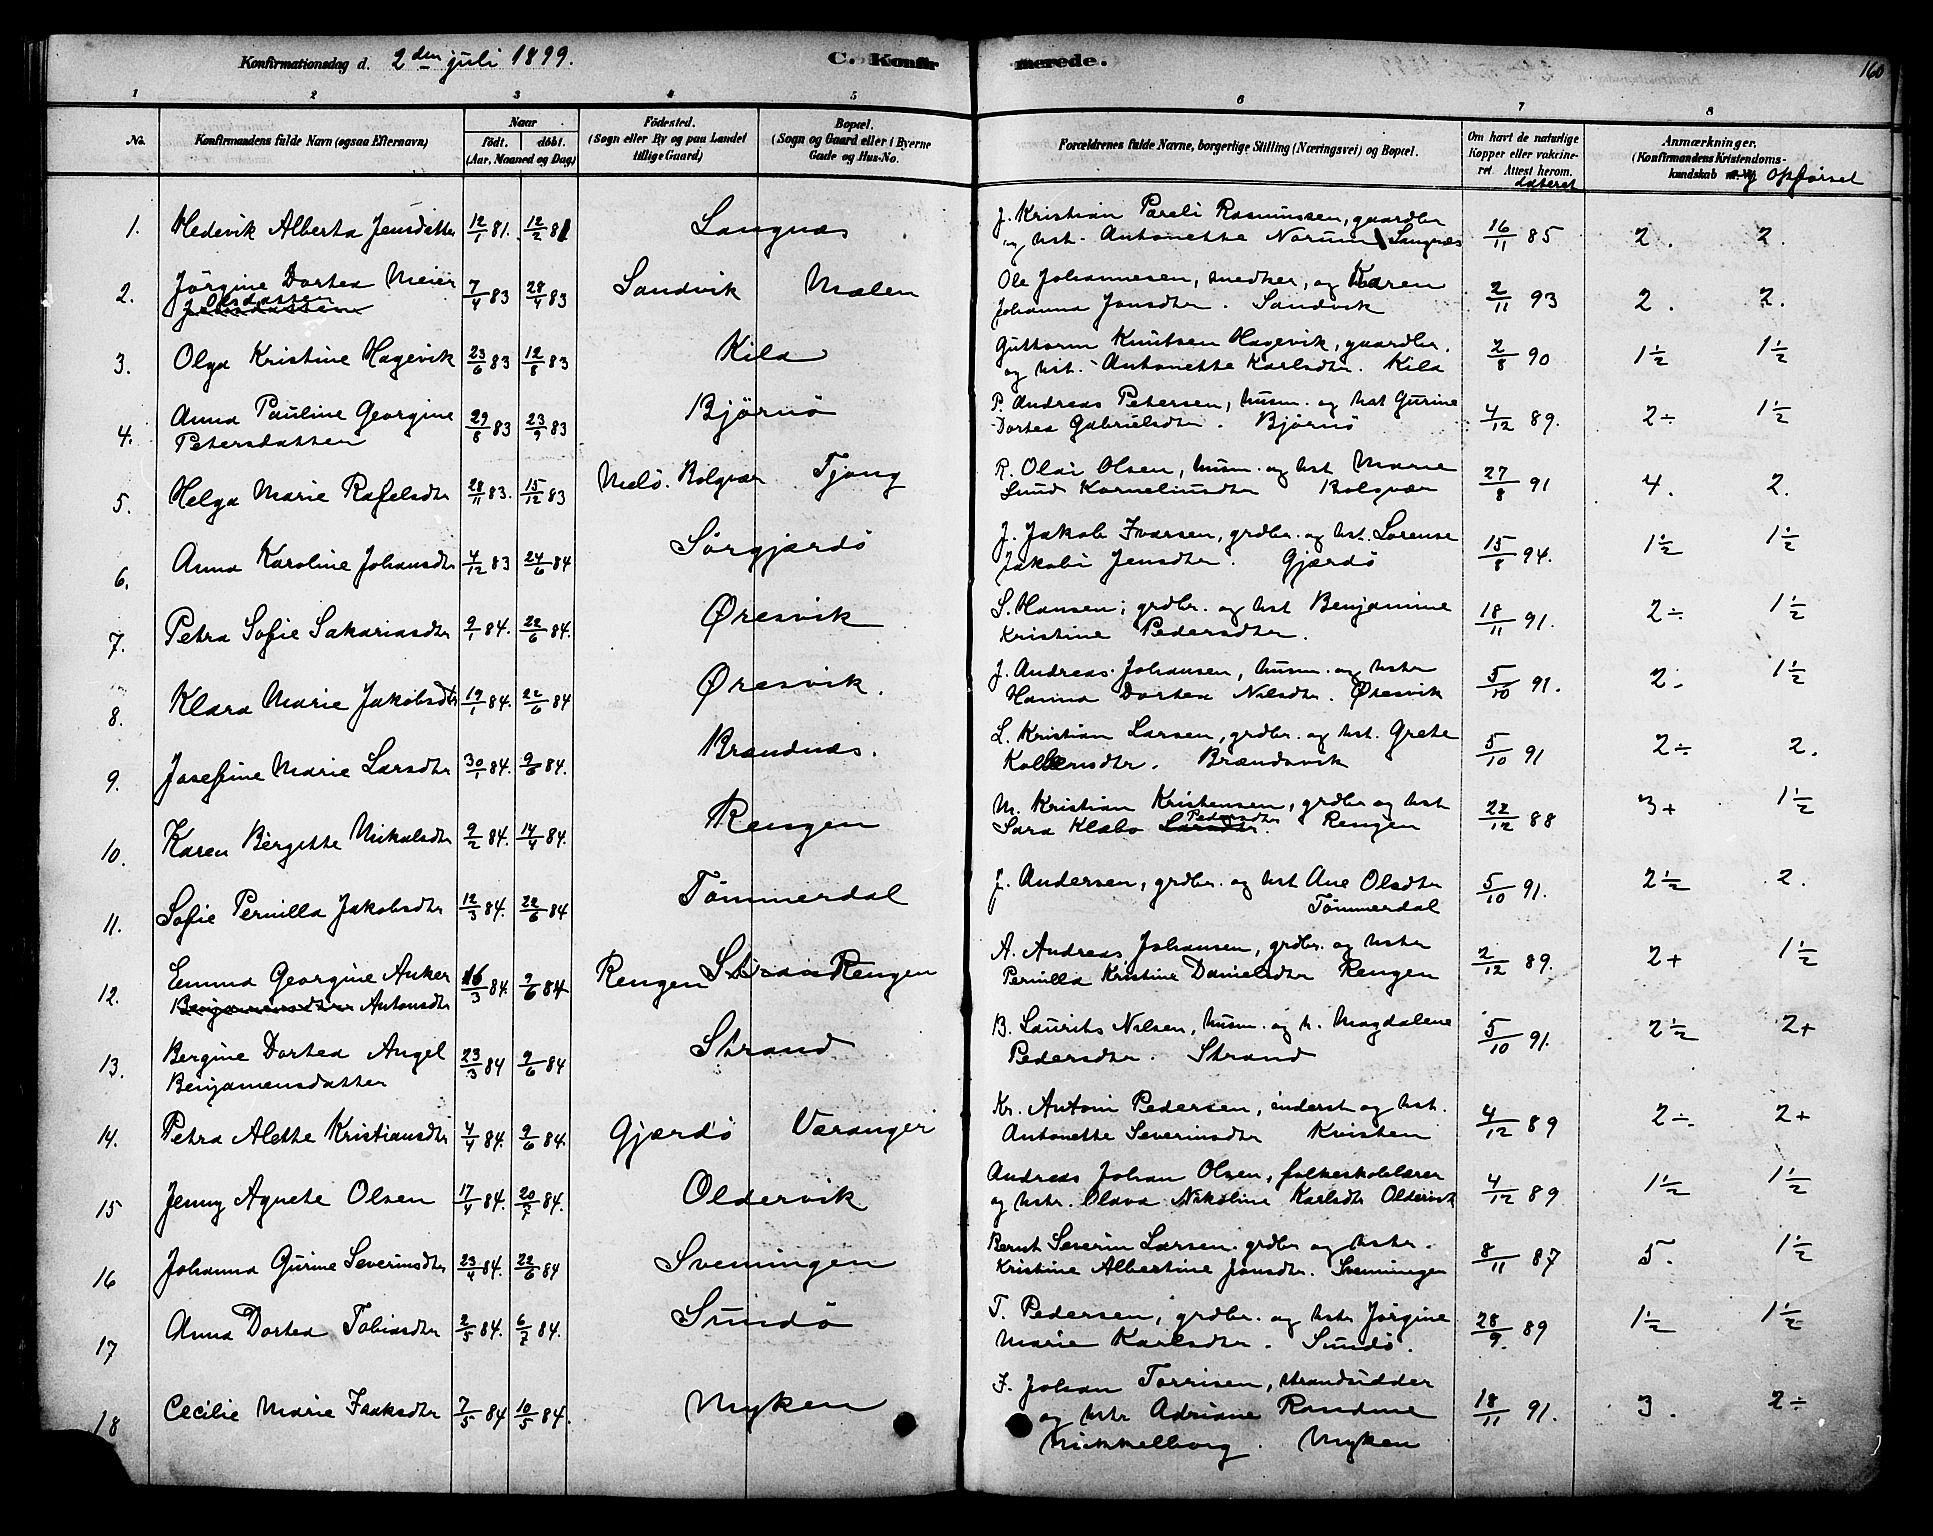 Konfirmationsdag d. 2den juli 1899.
C. Konfirmerede.
160
1 2 3 4 5 6 7 8
No.
Konfirmandens fulde Navn (ogsaa Efternavn)
Naar
födt. döbt.
(Aar, Maaned og Dag)
Födested.
(Sogn eller By og paa Landet
tillige Gaard)
Bopæl.
(Sogn og Gaard eller i Byerne
Gade og Hus-No.
Forældrenes fulde Navne, borgerlige Stilling (Næringsvei) og Bopæl.
Om havt de naturlige
Kopper eller vakcine-
ret. Attest herom.
dateret
Anmærkninger.
(Konfirmandens Kristendoms-
kundskab og opförsel
1. Hedevik Alberta Jensdatter 12/1 81. 12/2 81 Langnæs J. Kristian Pareli Rasmussen, gaardbr 16/11 85 2. 2.
og hst. Antonette Norum Langnæs
2. Jörgine Dortea Meier 7/4 83 28/4 83 Sandvik Mælen Ole Johannesen, snedker, og Karen 2/11 93 2. 2.
Olsdatter Johanna Jonsdtr. Sandvik
3. Olga Kristine Hagevik 23/6 83 12/8 83 Kila Guttorm Knutsen Hagevik, gaardbr. 2/8 90 1½ 1½
og hst. Antonette Karlsdtr. Kila
4. Anna Pauline Georgine 29/8 83 23/9 83 Bjørnö P. Andreas Petersen, husm. og hst Gurine 4/12 89. 2÷ 1½
Petersdatter Dortea Gabrielsdtr. Bjørnö
5. Helga Marie Rafelsdtr 28/11 83. 15/12 83 Melö. Bolgvær Tjong R. Olai Olsen, husm. og hst Marie 27/8 91 4. 2.
Sund Korneliusdtr Bolsvær
6. Anna Karoline Johansdtr 4/12 83 24/6 84 Sörgjærdö J. Jakob Ivarsen, grdbr. og hst. Lorense 15/8 94. 1½ 1½
Jakobi Jensdtr. Gjærdö
7. Petra Sofie Sakariasdtr 9/1 84. 22/6 84. Øresvik S. Hansen, grdbr. og hst Benjamine 18/11 91. 2÷ 1½
Kristine Pedersdtr.
8. Klara Marie Jakobsdtr 19/1 84. 22/6 84 Øresvik. J. Andreas Johansen, husm. og hstr 5/10 91. 2- 1½
Hanna Dortea Nilsdtr. Øresvik
9. Josefine Marie Larsdtr 30/1 84. 9/6 84. Brændnæs. L. Kristian Larsen, grdbr. og hst. Grete 5/10 91 2÷ 2.
Brændsvik
10. Karen Bergitte Mikalsdtr 9/2 84. 14/4 84. Rengen M. Kristian Kristensen, grdbr og hst 22/12 88 3+ 1½
Sara Klæbo Larsdtr. Pedersdtr Rengen
11. Sofie Pernilla Jakobsdtr 12/3 84. 22/6 84 Tömmerdal J. Andersen, grdbr. og hst Ane Olsdtr 5/10 91. 2½ 2.
Tömmerdal
12. Emma Georgine Anker 16/3 84. 9/6 84 Rengen Strand Rengen A. Andreas Johansen, grdbr. og hstr 2/12 89. 2+ 1½
Benjaminsdtter Antonsdtr Pernilla Kristine Danielsdtr Rengen
13. Bergine Dortea Angel 23/3 84 9/6 84 Strand B. Laurits Nilsen, husm. og h. Magdalene 5/10 91. 2½ 2+
Benjamensdatter Pedersdtr. Strand
14. Petra Alette Kristiansdtr 4/4 84. 9/6 84. Gjærdö Varanger Kr. Antoni Pedersen, inderst og hst. 4/12 89 2÷ 2+
Antonette Severinsdtr Kvisten
15 Jenny Agnete Olsen 17/4 84. 20/7 84. Oldervik Andreas Johan Olsen, folkeskolelærer 4/12 89 1½ 1½
og hstr. Olava Nikoline Karlsdtr Oldervik
16 Johanna Gurine Severinsdtr 23/4 84. 22/6 84 Svenningen Bernt Severin Larsen. grdbr og hstr. 8/11 87 5. 1½
Kristine Albertine Jonsdtr. Svenningen
17 Anna Dortea Tobiasdtr 2/5 84. 6/7 84. Sundö T. Pedersen, grdbr. og hstr Jörgine 28/9. 89 1½ 1½
Marie Karlsdtr. Sundö.
18 Cecilie Marie Isaksdtr 7/5 84 10/5 84. Myken I. Johan Torrisen, strandsidder 18/11 91. 3. 2÷
og hstr Adriane Randine
Mikkelborg. Myken